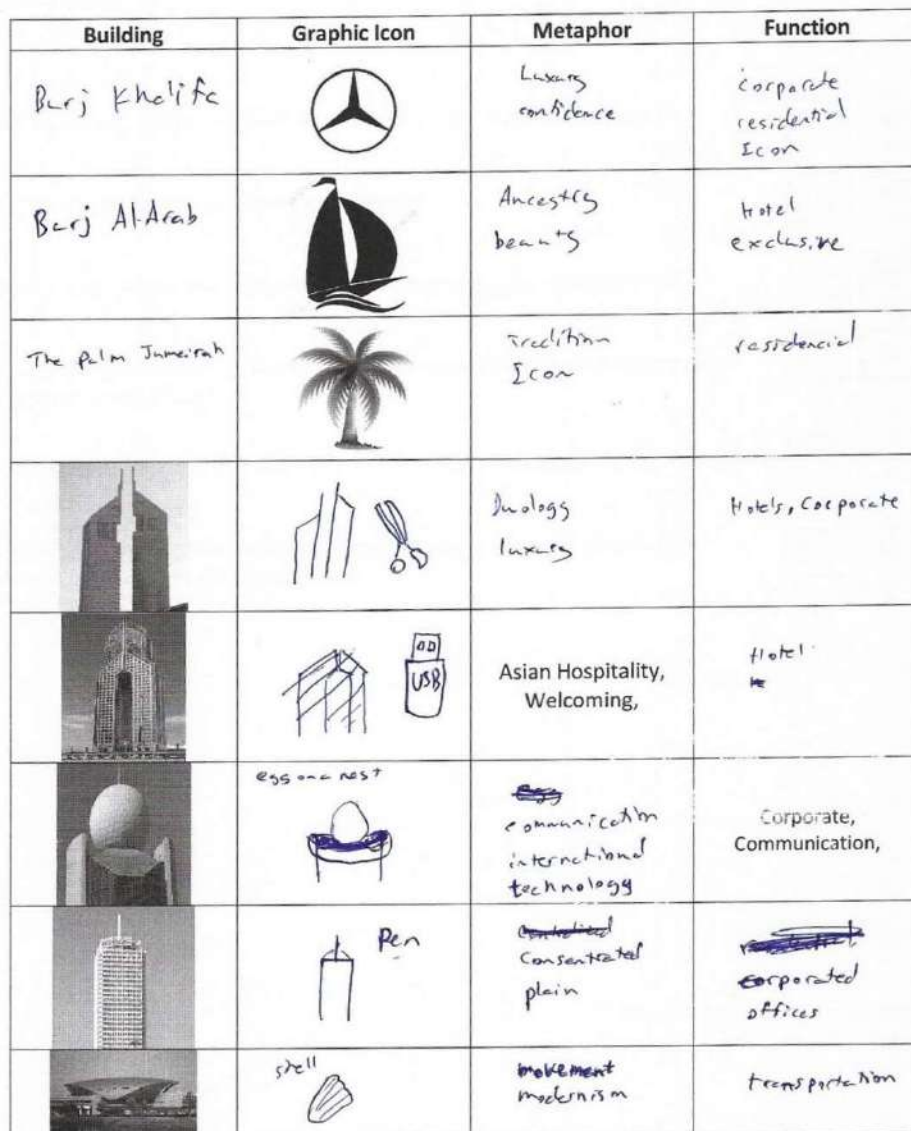 Building Graphic Icon Metaphor Function
Burj Khalifa
Luxury
confidence
corporate
residential
Icon
Burj Al-Arab
Ancestry
beauty
Hotel
exclusive
The palm Jumeirah
Tradition
Icon
residencial
Duology
luxury
Hotels, Corporate
USB
Asian Hospitality,
Welcoming,
Hotel
egg on a nest
communication
international
technology
Corporate,
Communication,
Pen
Consentrated
plain
corporated
offices
shell
movement
modernism
transportation